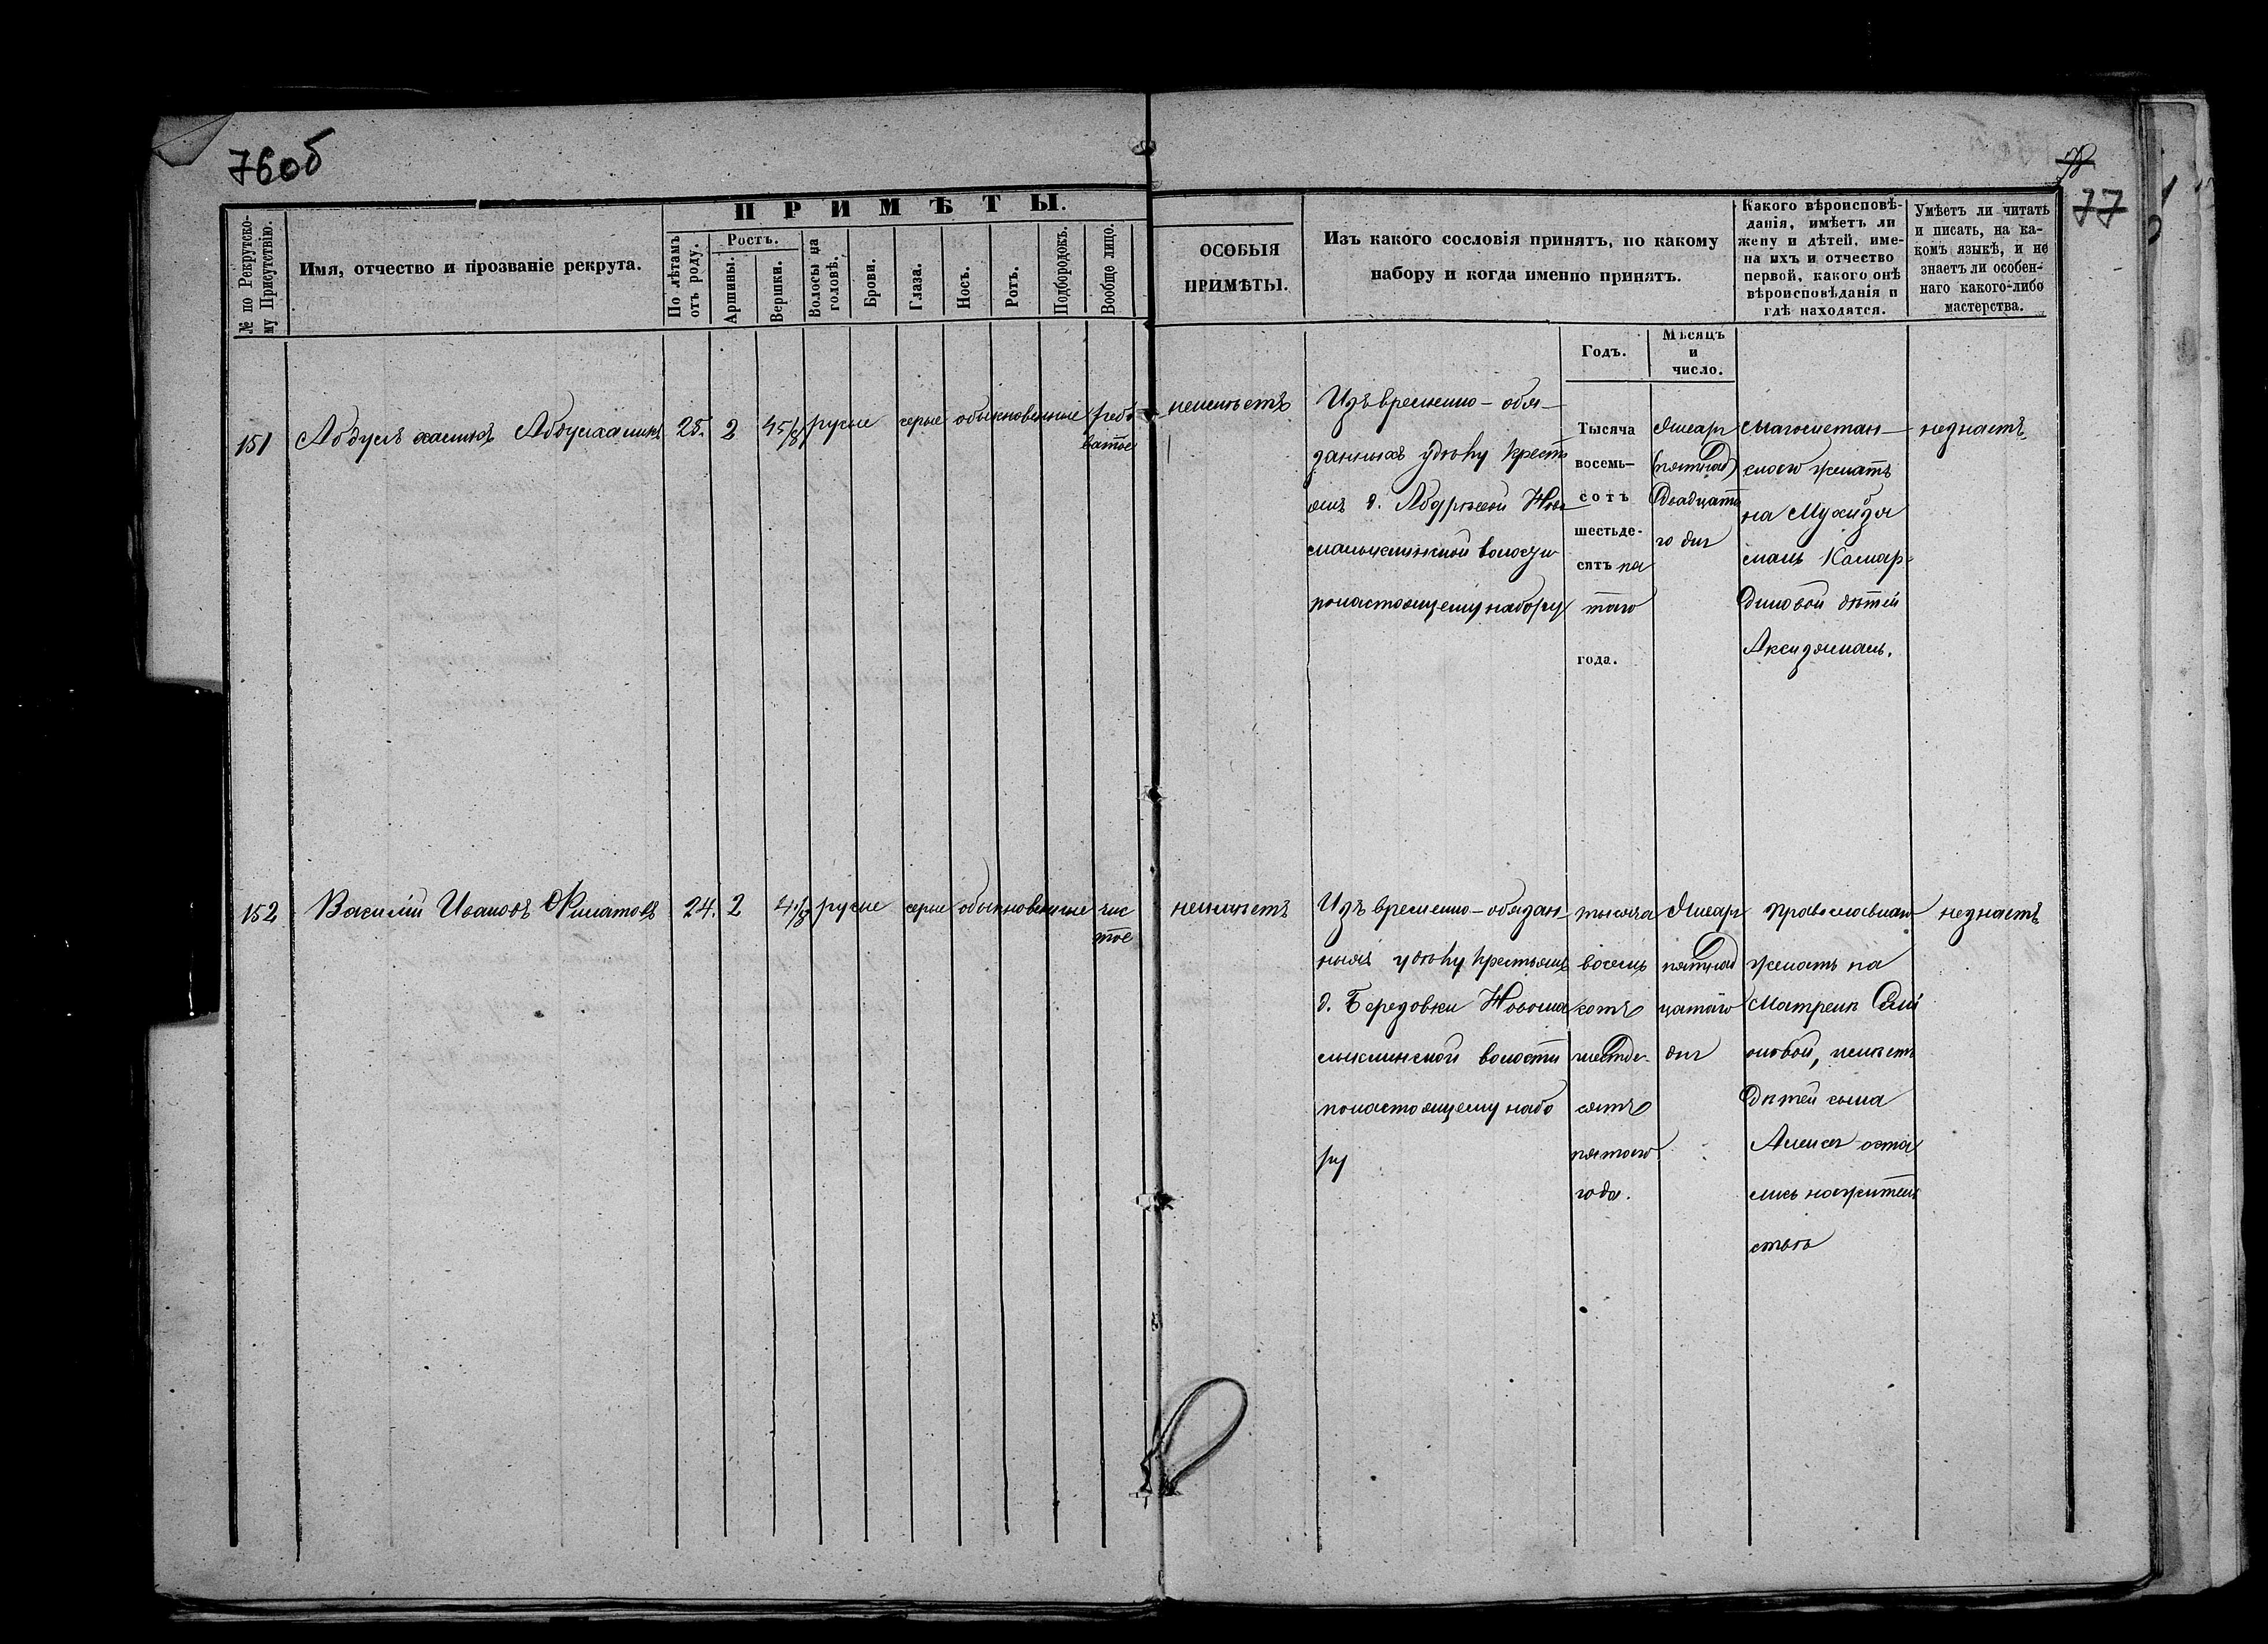 76об
77
ПРИМѢТЫ.
№ по Рекрутско-
му Присутствію.
Имя, отчество и прозваніе рекрута.
По лѣтамъ
отъ роду.
Ростъ.
Аршины.
Вершки.
Волосы на
головѣ.
Брови.
Глаза.
Носъ.
Ротъ.
Подбородокъ.
Вообще лицо.
ОСОБЫЯ
ПРИМѢТЫ.
Изъ какого сословія принятъ, по какому
набору и когда именно принятъ.
Какого вѣроисповѣ-
данія, имѣетъ ли
жену и дѣтей, име-
на ихъ и отчество
первой, какого онѣ
вѣроисповѣданія и
гдѣ находятся.
Умѣетъ ли читать
и писать, на ка-
комъ языкѣ, и не
знаетъ ли особен-
наго какого-либо
мастерства.
Годъ.
Мѣсяцъ
и
число.
151
Абдулъ
25. 2 4 5/8 русые серые обыкновенные
ватое
неимѣетъ
Изъ временно-обя-
занныхъ удѣлу крестъ
янъ д.
волости
понастоящему набору
Тысяча
восемь-
сотъ
шестьде-
сятъ пя
таго
года.
Января
(пятнад)
Двадцата
го дня
магометан-
скаго женатъ
на
Камар-
диновой дѣтей
незнаетъ
152
Василій Ивановъ Филатовъ
24. 2 4 1/8 русые серые обыкновенные чис
тое
неимѣетъ
Изъ временно-обязан-
ныхъ удѣлу крестьянъ
д. Новома
лыклинской волости
понастоящему набо
ру
тысяча
восемь
сотъ
шестьде-
сятъ
пятаго
года.
Января
пятнад
цатаго
дня
Православнаго
женатъ на
Матренѣ Семі
оновой, имѣетъ
дѣтей сына
оста
лись нажитель
ствѣ
незнаетъ